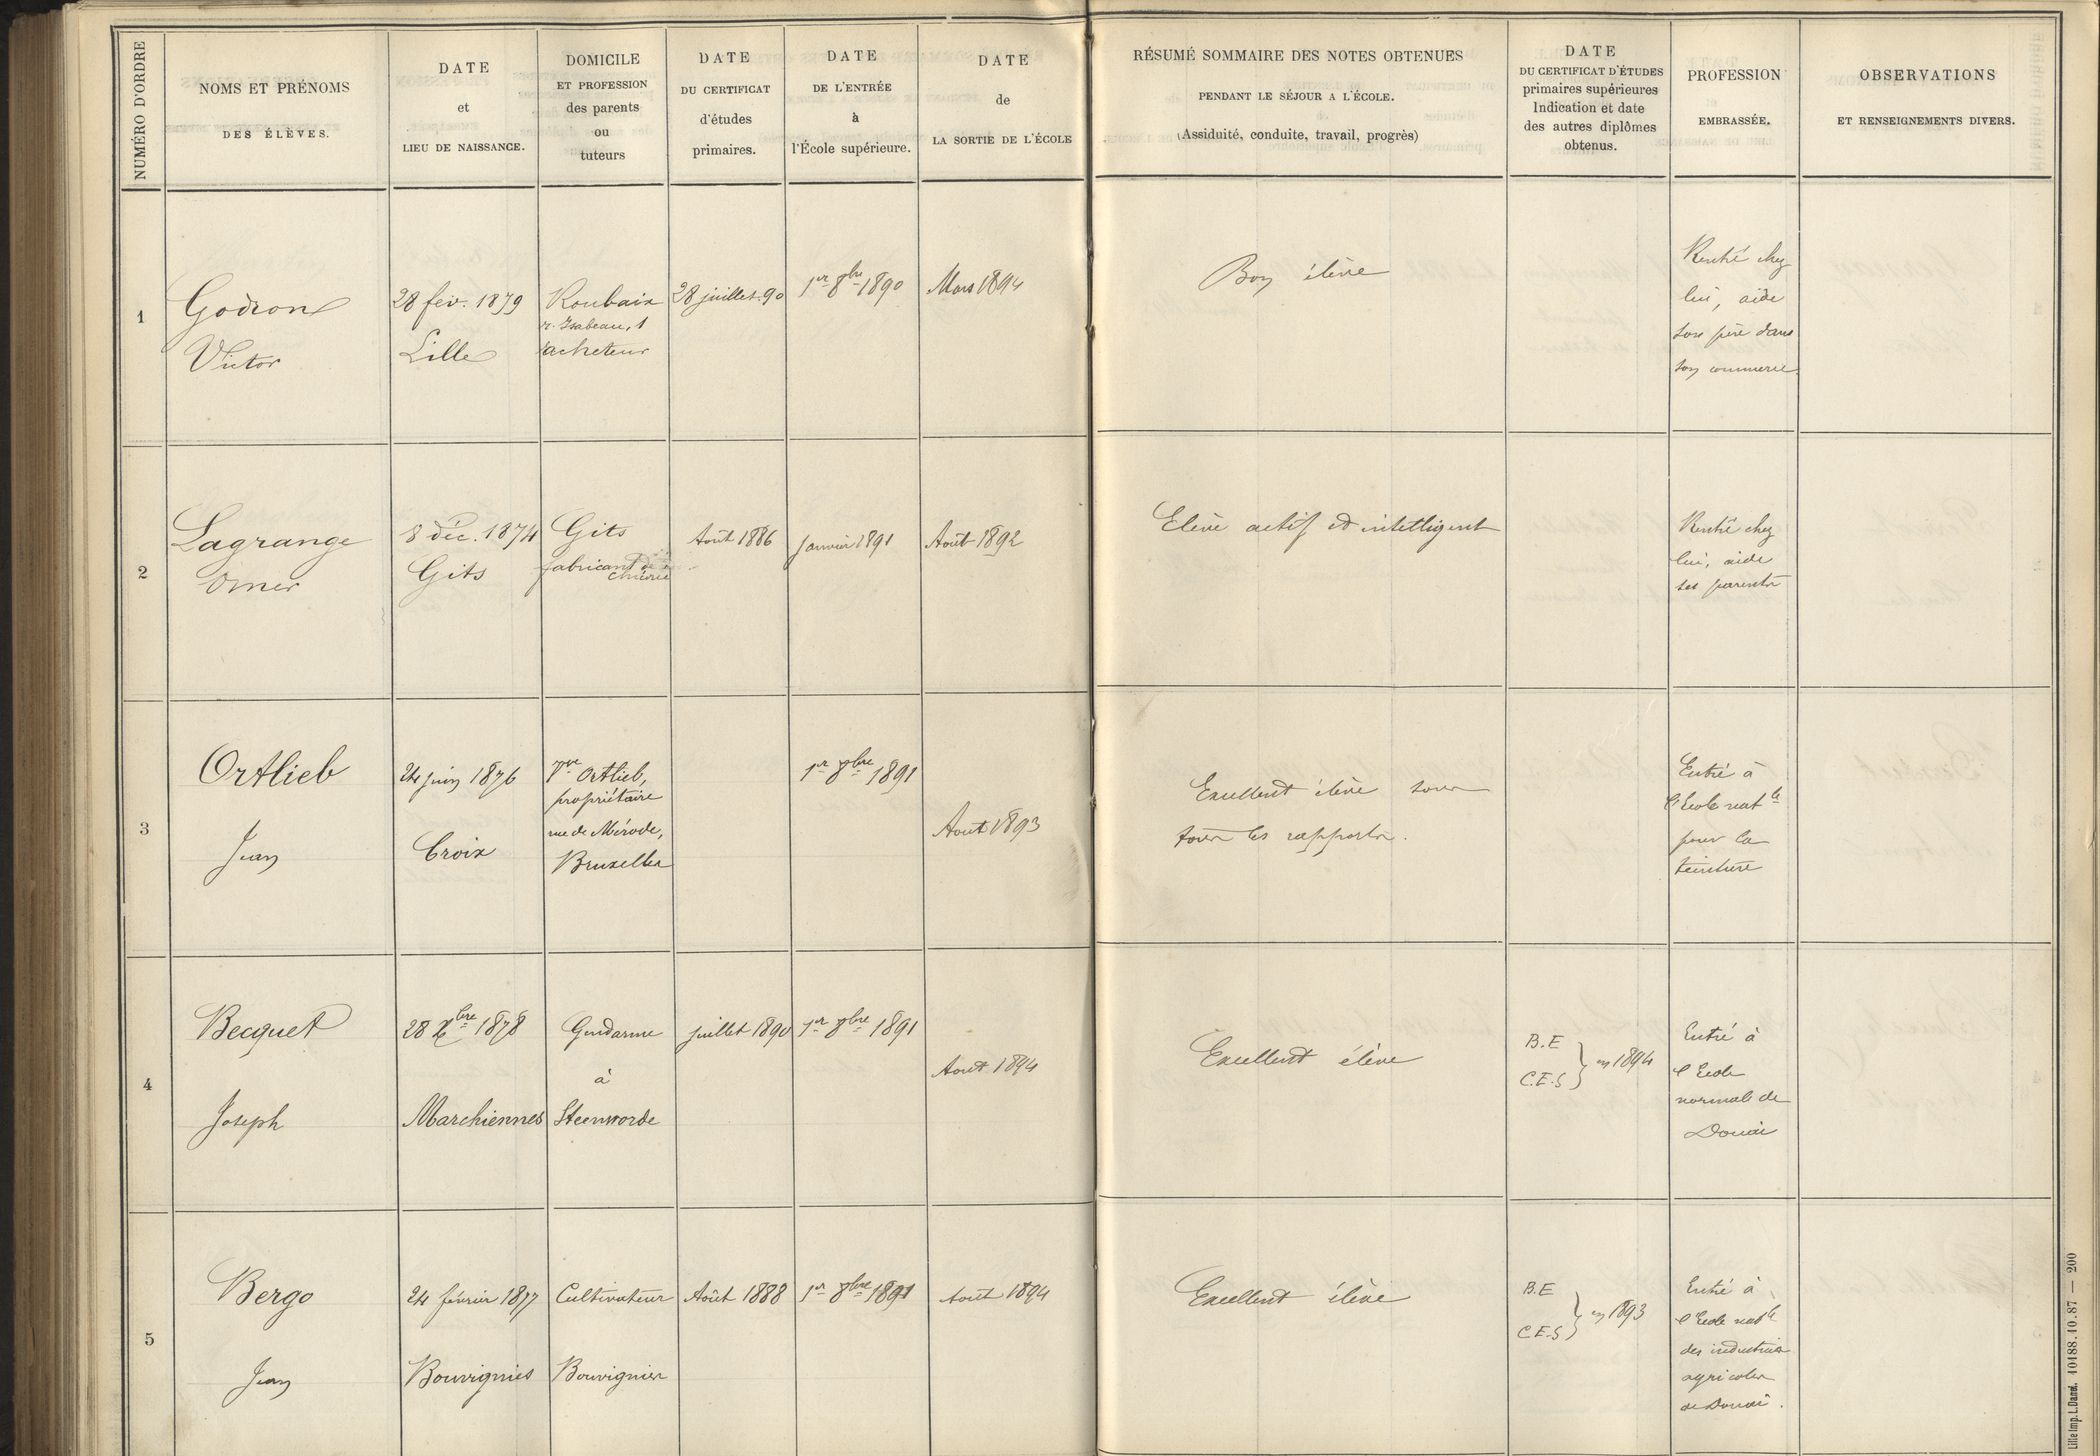 NUMÉRO D'ORDRE
NOMS ET PRÉNOMS
DES ÉLÈVES.
DATE
et
LIEU DE NAISSANCE.
DOMICILE
ET PROFESSION
des parents
ou
tuteurs
DATE
DU CERTIFICAT
d'études
primaires.
DATE
DE L'ENTRÉE
à
l'École supérieure.
DATE
de
LA SORTIE DE L'ÉCOLE
RÉSUMÉ SOMMAIRE DES NOTES OBTENUES
PENDANT LE SÉJOUR A L'ÉCOLE.
(Assiduité, conduite, travail, progrès)
DATE
DU CERTIFICAT D'ÉTUDES
primaires supérieures
Indication et date
des autres diplômes
obtenus.
PROFESSION
EMBRASSÉE.
OBSERVATIONS
ET RENSEIGNEMENTS DIVERS.
1
Godron
Victor
28 fév. 1879
Lille
Roubaix
r. Isabeau, 1
acheteur
28 juillet 90
1er 8bre 1890
Mars 1894
Bon élève
Rentré chez
lui, aide
son père dans
son commerce.
2
Lagrange
Omer
8 déc. 1874
Gits
Gits
fabricant de
chicorée
Août 1886
Janvier 1891
Août 1892
Elève actif et intelligent
Rentré chez
lui, aide
ses parents
3
Ortlieb
Jean
24 juin 1876
Croix
Vve Ortlieb,
propriétaire
rue de Mérode,
Bruxelles
1er 8bre 1891
Aout 1893
Excellent élève sous
tous les rapports.
Entré à
l'Ecole natle
pour la
teinture
4
Becquet
Joseph
28 Xbre 1878
Marchiennes
Gendarme
à
Steenvorde
juillet 1890
1er 8bre 1891
Aout 1894
Excellent élève
B.E
C.E.S } en 1894
Entré à
l'Ecole
normale de
Douai
5
Bergo
Jean
24 février 1877
Bouvignies
Cultivateur
Bouvignies
Août 1888
1er 8bre 1891
Aout 1894
Excellent élève
B.E
C.E.S } en 1893
Entré à
l'Ecole natle
des industries
agricoles
de Douai.
Lille Imp. L. Danel. 10188.10.87 — 200